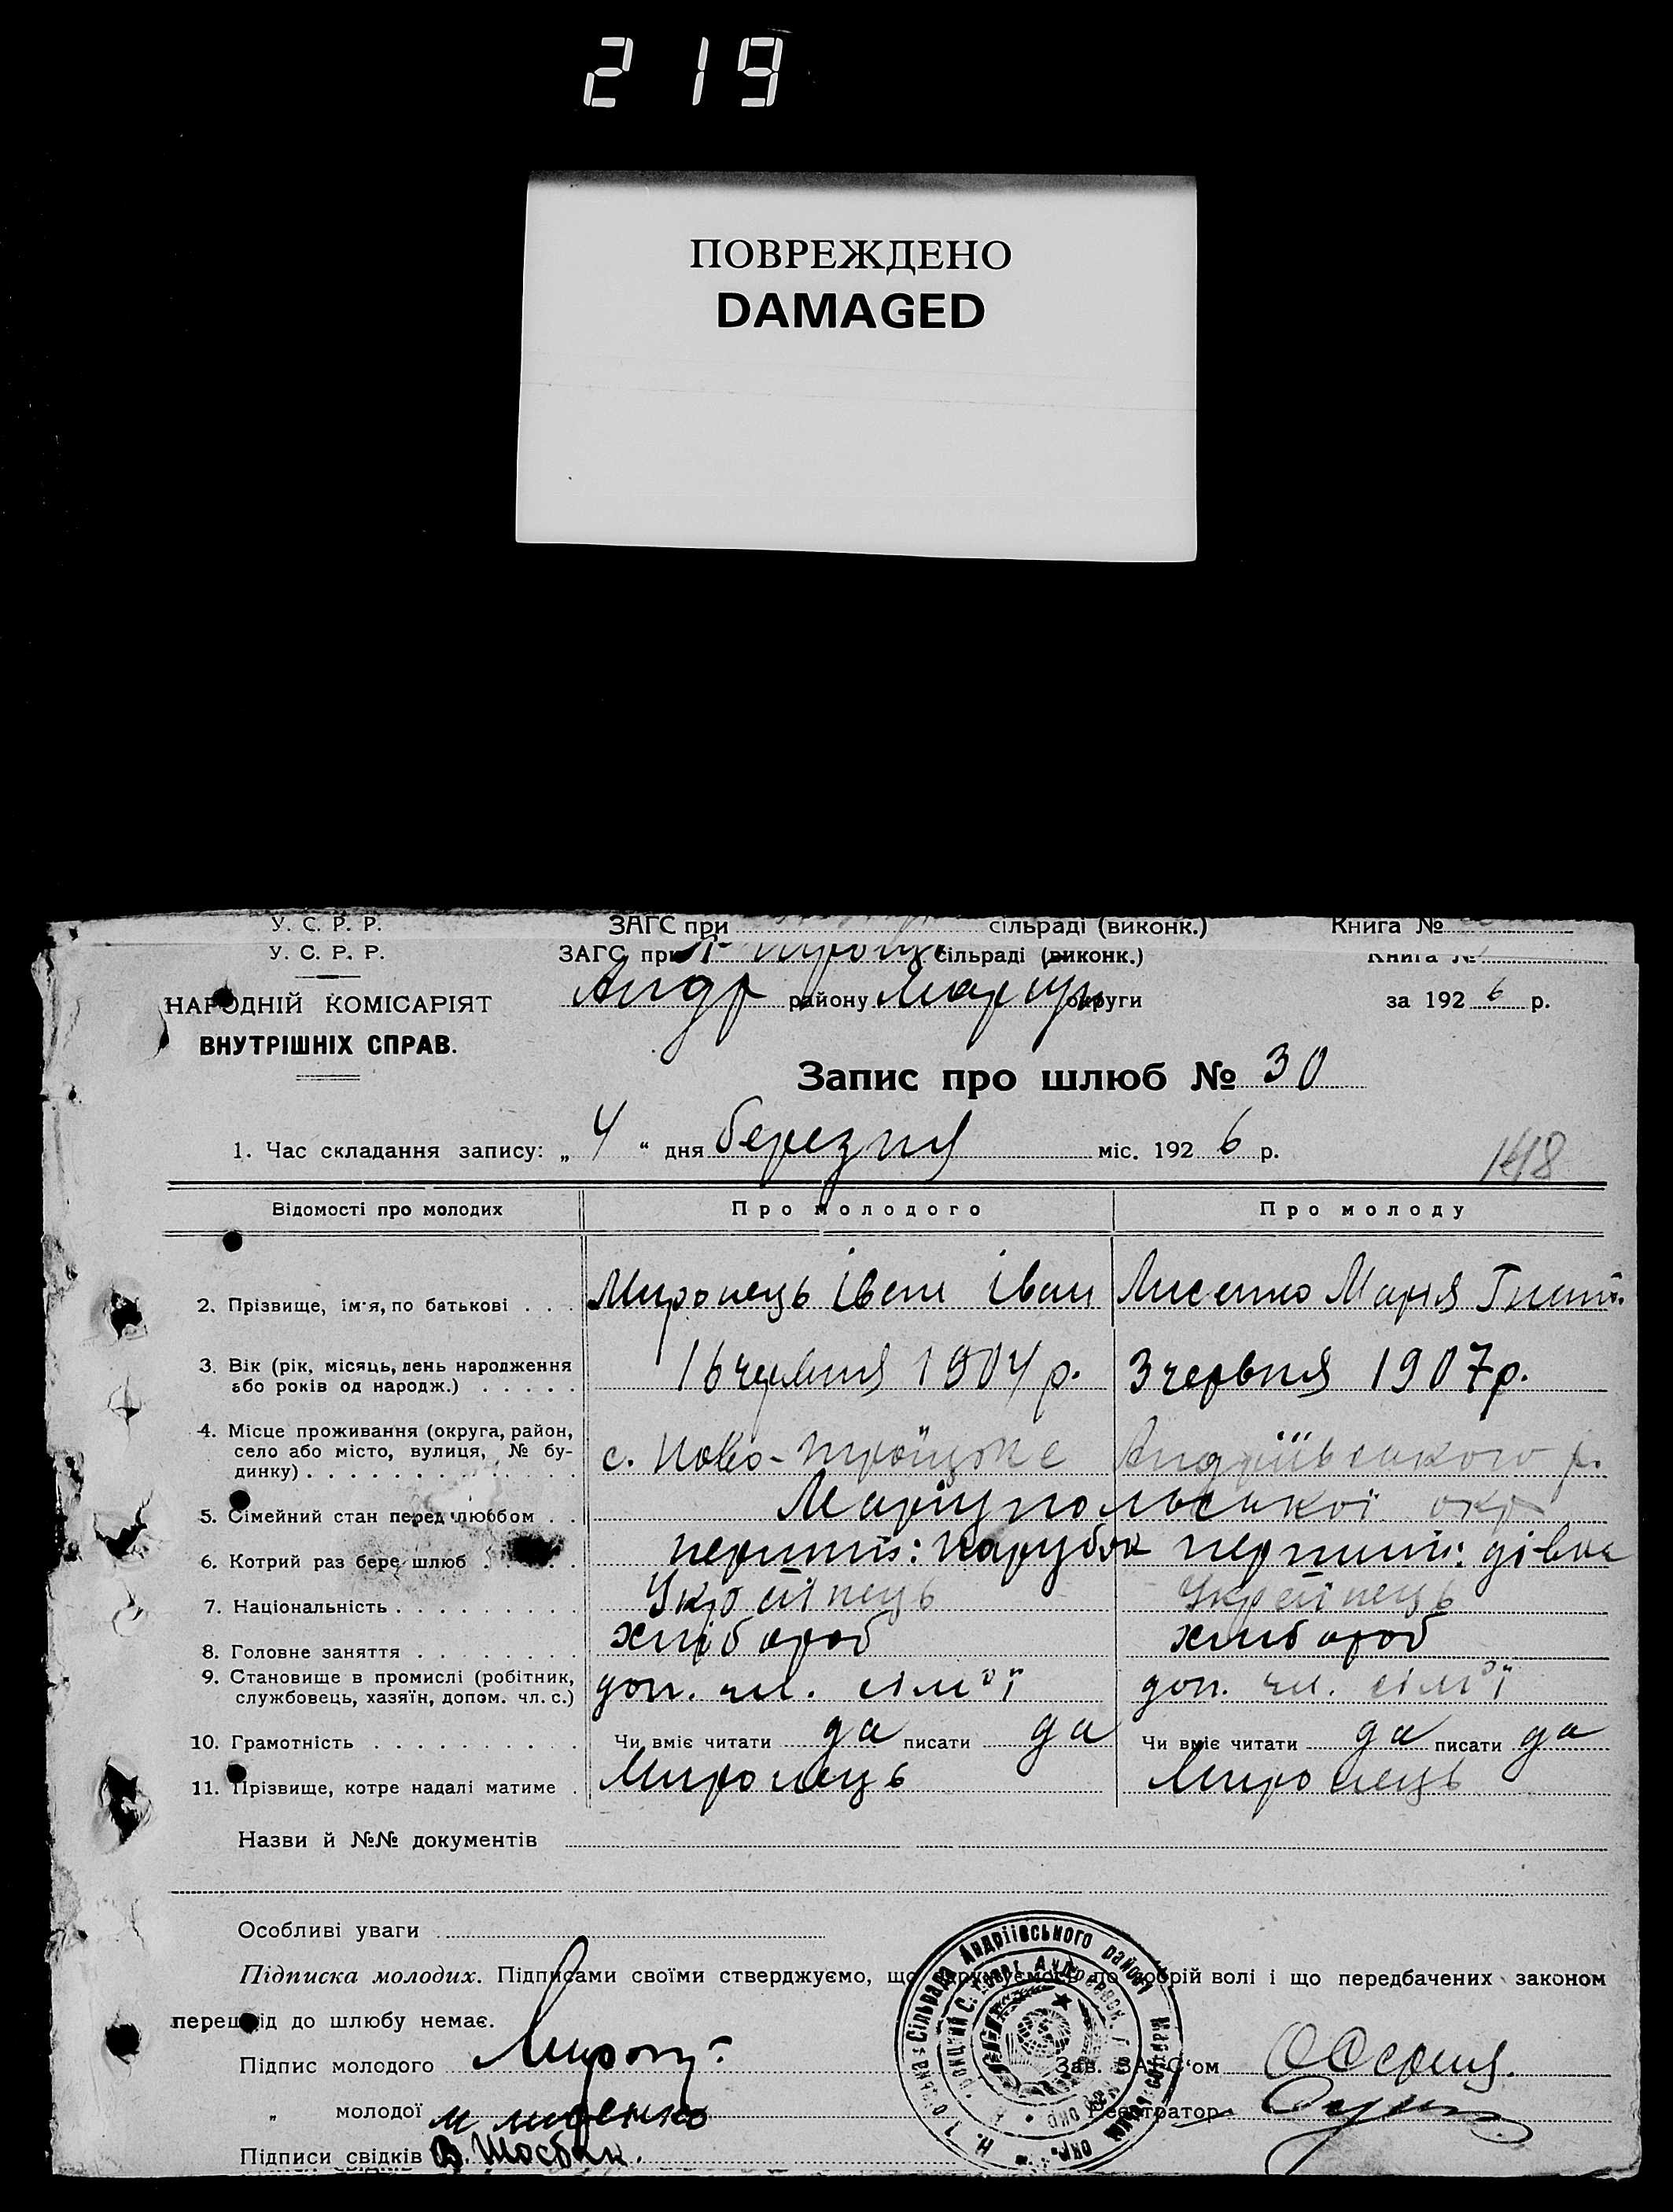 219
ПОВРЕЖДЕНО
DAMAGED
У. С. Р. Р. ЗАГС при сільраді (виконк.) Книга №
У. С. Р. Р. ЗАГС при сільраді (виконк.) Книга №
НАРОДНІЙ КОМІСАРІЯТ Андр району Маріуп округи за 1926 р.
ВНУТРІШНІХ СПРАВ.
Запис про шлюб № 30
1. Час складання запису: „4“ дня березня міс. 1926 р.
148
Відомості про молодих Про молодого Про молоду
2. Прізвище, ім'я, по батькові . . . Миронець Іван Іван Лисенко Марія Гнат.
3. Вік (рік, місяць, день народження
або років од народж.) . . . . . 16 червня 1904 р. 3 червня 1907 р.
4. Місце проживання (округа, район,
село або місто, вулиця, № бу-
динку) . . . . . . . . . . . . с. Ново-Троїцьке Андріївського р.
Маріупольської окр
5. Сімейний стан перед шлюбом . .
6. Котрий раз бере шлюб . . . . . перший: парубок перший: дівка
7. Національність . . . . . . . . . Українець Українець
8. Головне заняття . . . . . . . . хлібороб хлібороб
9. Становище в промислі (робітник,
службовець, хазяїн, допом. чл. с.) доп. чл. сім'ї доп. чл. сім'ї
10. Грамотність . . . . . . . . . . Чи вміє читати да писати да Чи вміє читати да писати да
11. Прізвище, котре надалі матиме . Миронець Миронець
Назви й №№ документів
Особливі уваги
Підписка молодих. Підписами своїми стверджуємо, що одружуємось по добрій волі і що передбачених законом
перешкід до шлюбу немає.
Підпис молодого Зав. ЗАГС'ом
„ молодої М Лисенко Реєстратор
Підписи свідків В.
Сільрада Андріївського району